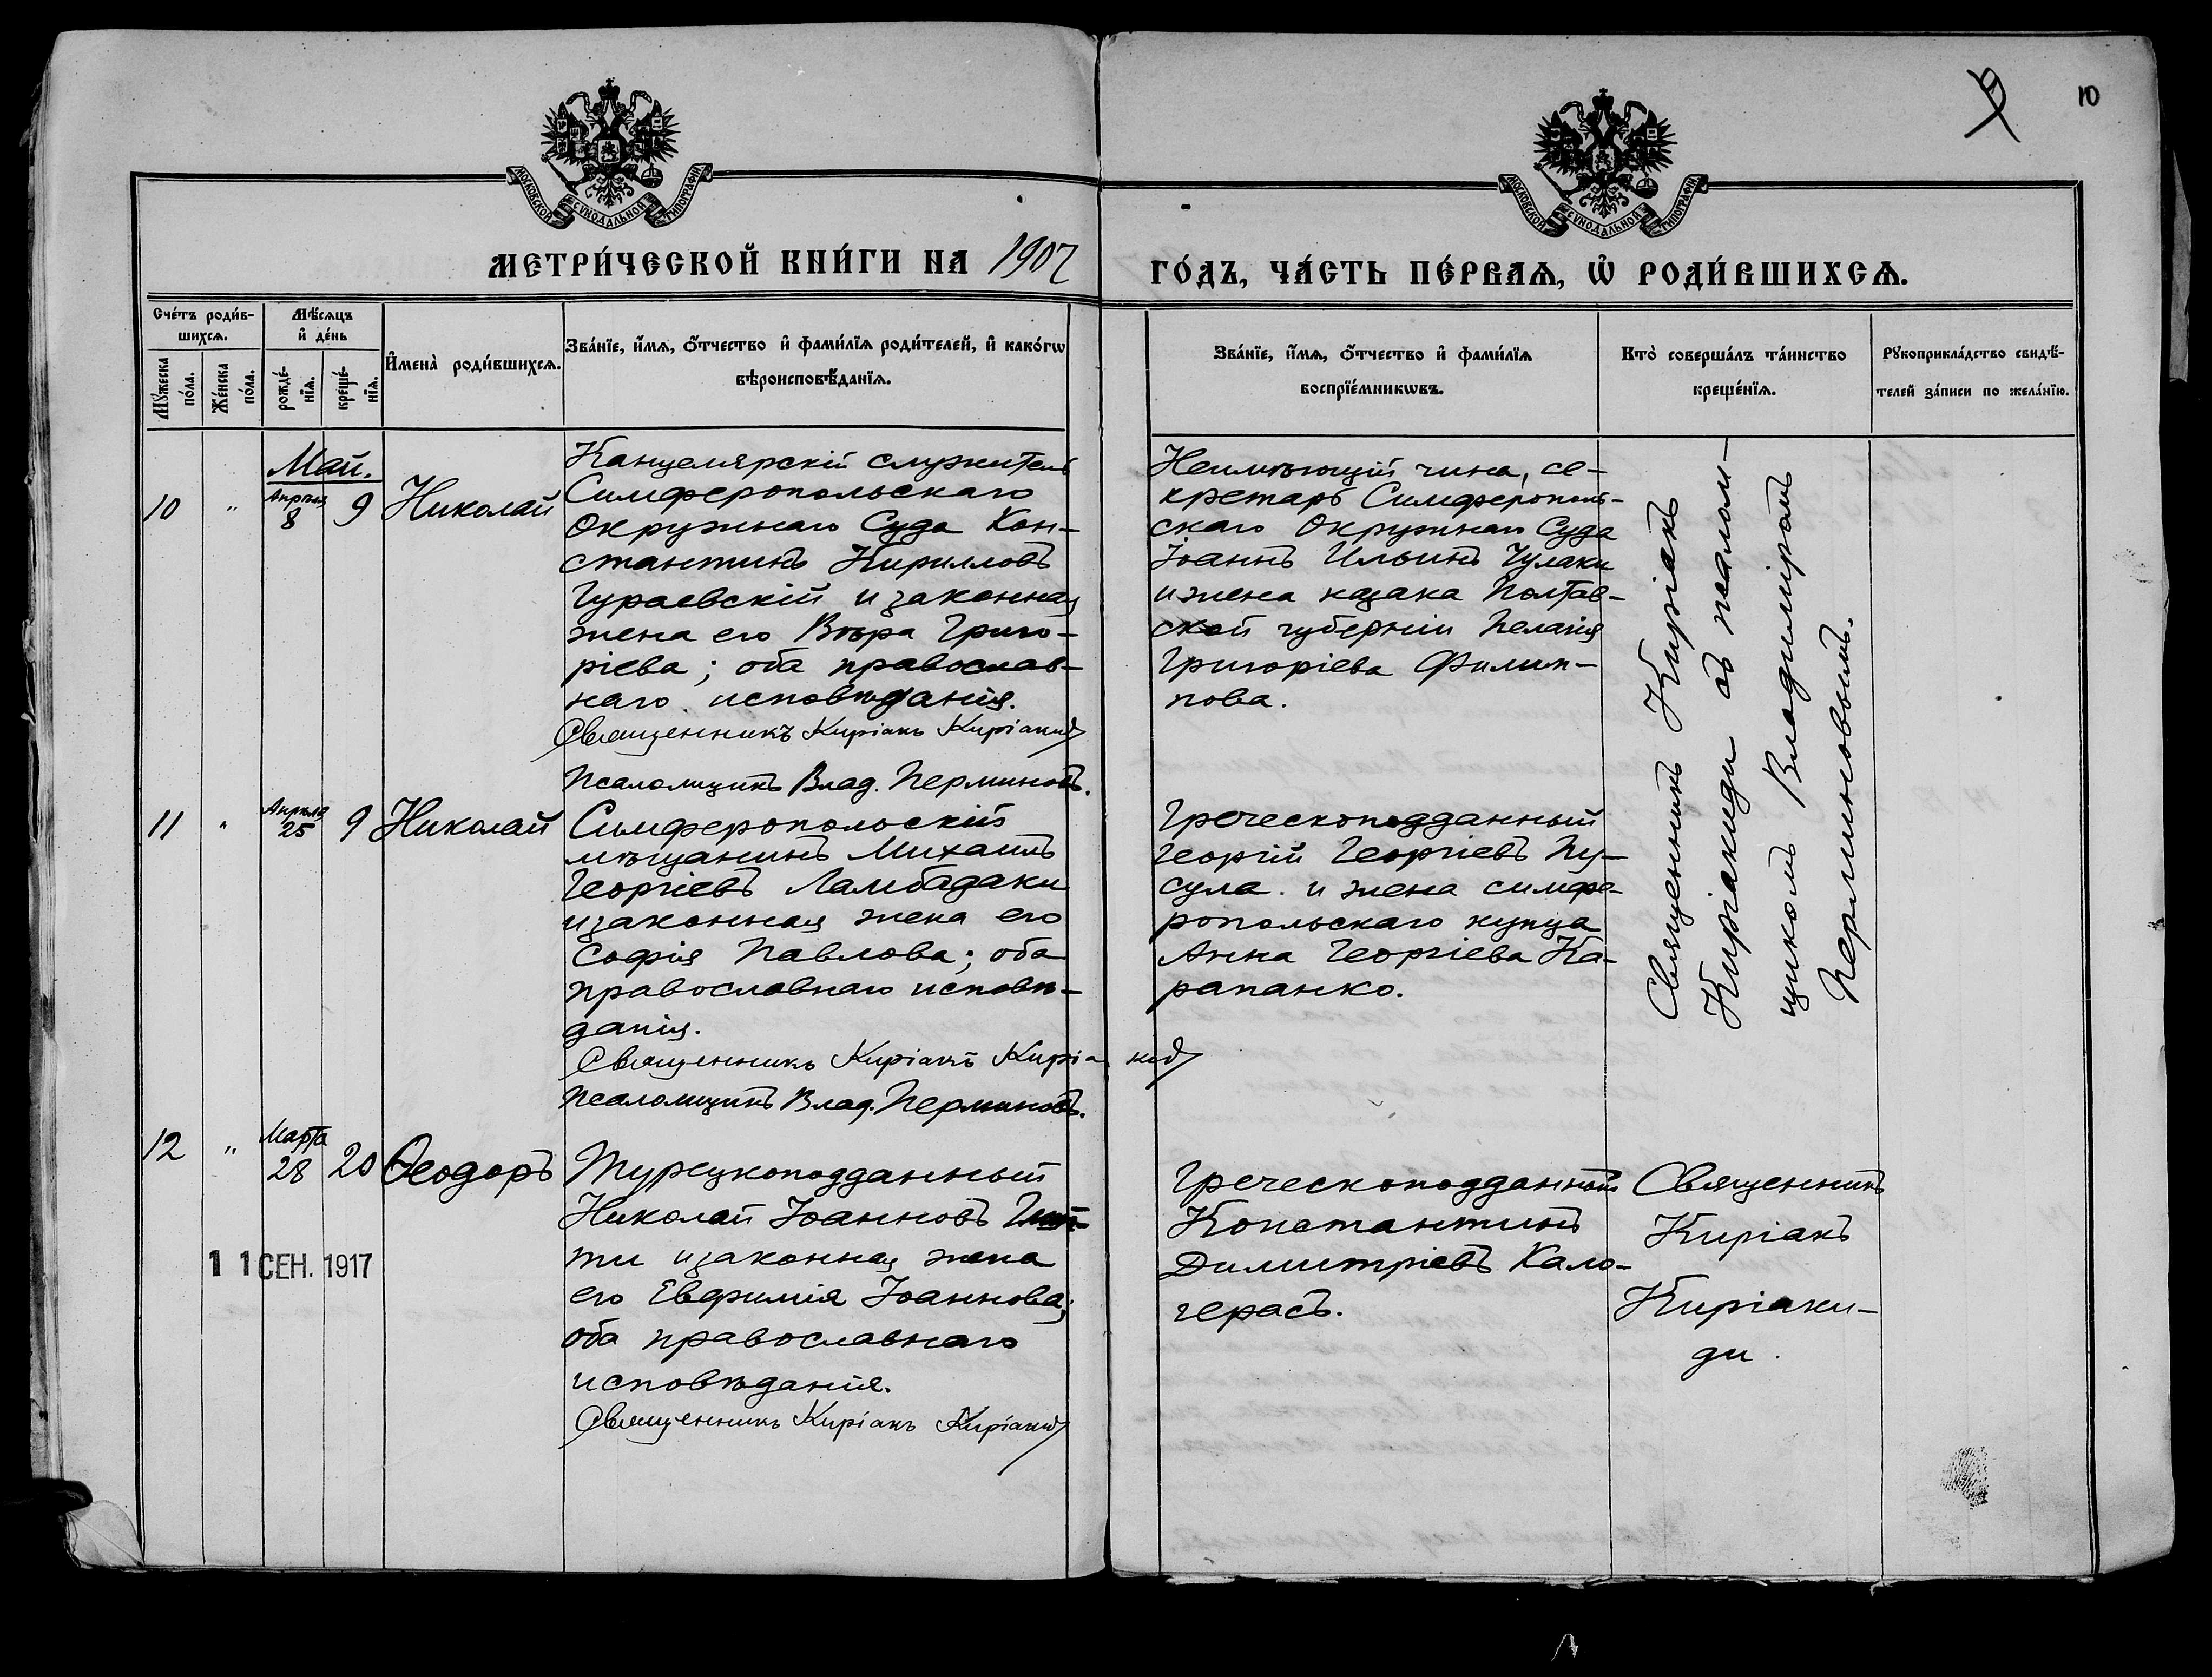 10
МОСКОВСКОЙ СѴНОДАЛЬНОЙ ТИПОГРАФІИ
МОСКОВСКОЙ СѴНОДАЛЬНОЙ ТИПОГРАФІИ
МЕТРИ́ЧЕСКОЙ КНИ́ГИ НА 1907
ГО́ДЪ, ЧА́СТЬ ПЕ́РВАѦ, Ѽ РОДИ́ВШИХСѦ.
Сче́тъ роди́в-
шихсѧ.
Мѣ́сѧцъ
и҆ де́нь
Мꙋ́жеска
по́ла.
Же́нска
по́ла.
рожде́-
нїѧ.
креще́-
нїѧ.
И҆мена̀ роди́вшихсѧ.
Зва́нїе, и҆́мѧ, ѻ҆́тчество и҆ фами́лїѧ роди́телей, и҆ како́гѡ
вѣроисповѣ́данїѧ.
Зва́нїе, и҆́мѧ, ѻ҆́тчество и҆ фами́лїѧ
воспрїе́мникѡвъ.
Кто̀ соверша́лъ та́инство
креще́нїѧ.
Рꙋкоприкла́дство свидѣ́-
телей за́писи по жела́нїю.
Май.
10 " Апрѣля 8 9 Николай
Канцелярскій служитель
Симферопольскаго
Окружнаго Суда Кон-
стантинъ Кирилловъ
Гураевскій и законная
жена его Вѣра Григо-
ріева; оба православ-
наго исповѣданія.
Священникъ Киріакъ Киріакиди
Псаломщикъ Влад. Перминовъ.
Неимѣющій чина, се-
кретарь Симферополь-
скаго Окружнаго Суда
Іоаннъ Ильинъ Чулаки
и жена казака Полтав-
ской губерніи Пелагія
Григоріева Филип-
пова.
Священникъ Киріакъ
Киріакиди съ псалом-
щикомъ Владиміромъ
Перминовымъ.
11 " Апрѣля 25 9 Николай
Симферопольскій
мѣщанинъ Михаилъ
Георгіевъ Ламбадаки
и законная жена его
Софія Павлова; оба
православнаго исповѣ-
данія.
Священникъ Киріакъ Киріакиди
Псаломщикъ Влад. Перминовъ.
Греческоподданный
Георгій Георгіевъ Пу-
сула и жена симфе-
ропольскаго купца
Анна Георгіева Ка-
рапанко.
12 " Марта 28 20 Ѳеодоръ
11 СЕН. 1917
Турецкоподданный
Николай Іоанновъ
ти и законная жена
его Евфимія Іоаннова;
оба православнаго
исповѣданія.
Священникъ Киріакъ Киріакиди
Греческоподданный
Константинъ
Димитріевъ Кало-
герасъ.
Священникъ
Киріакъ
Киріаки-
ди.